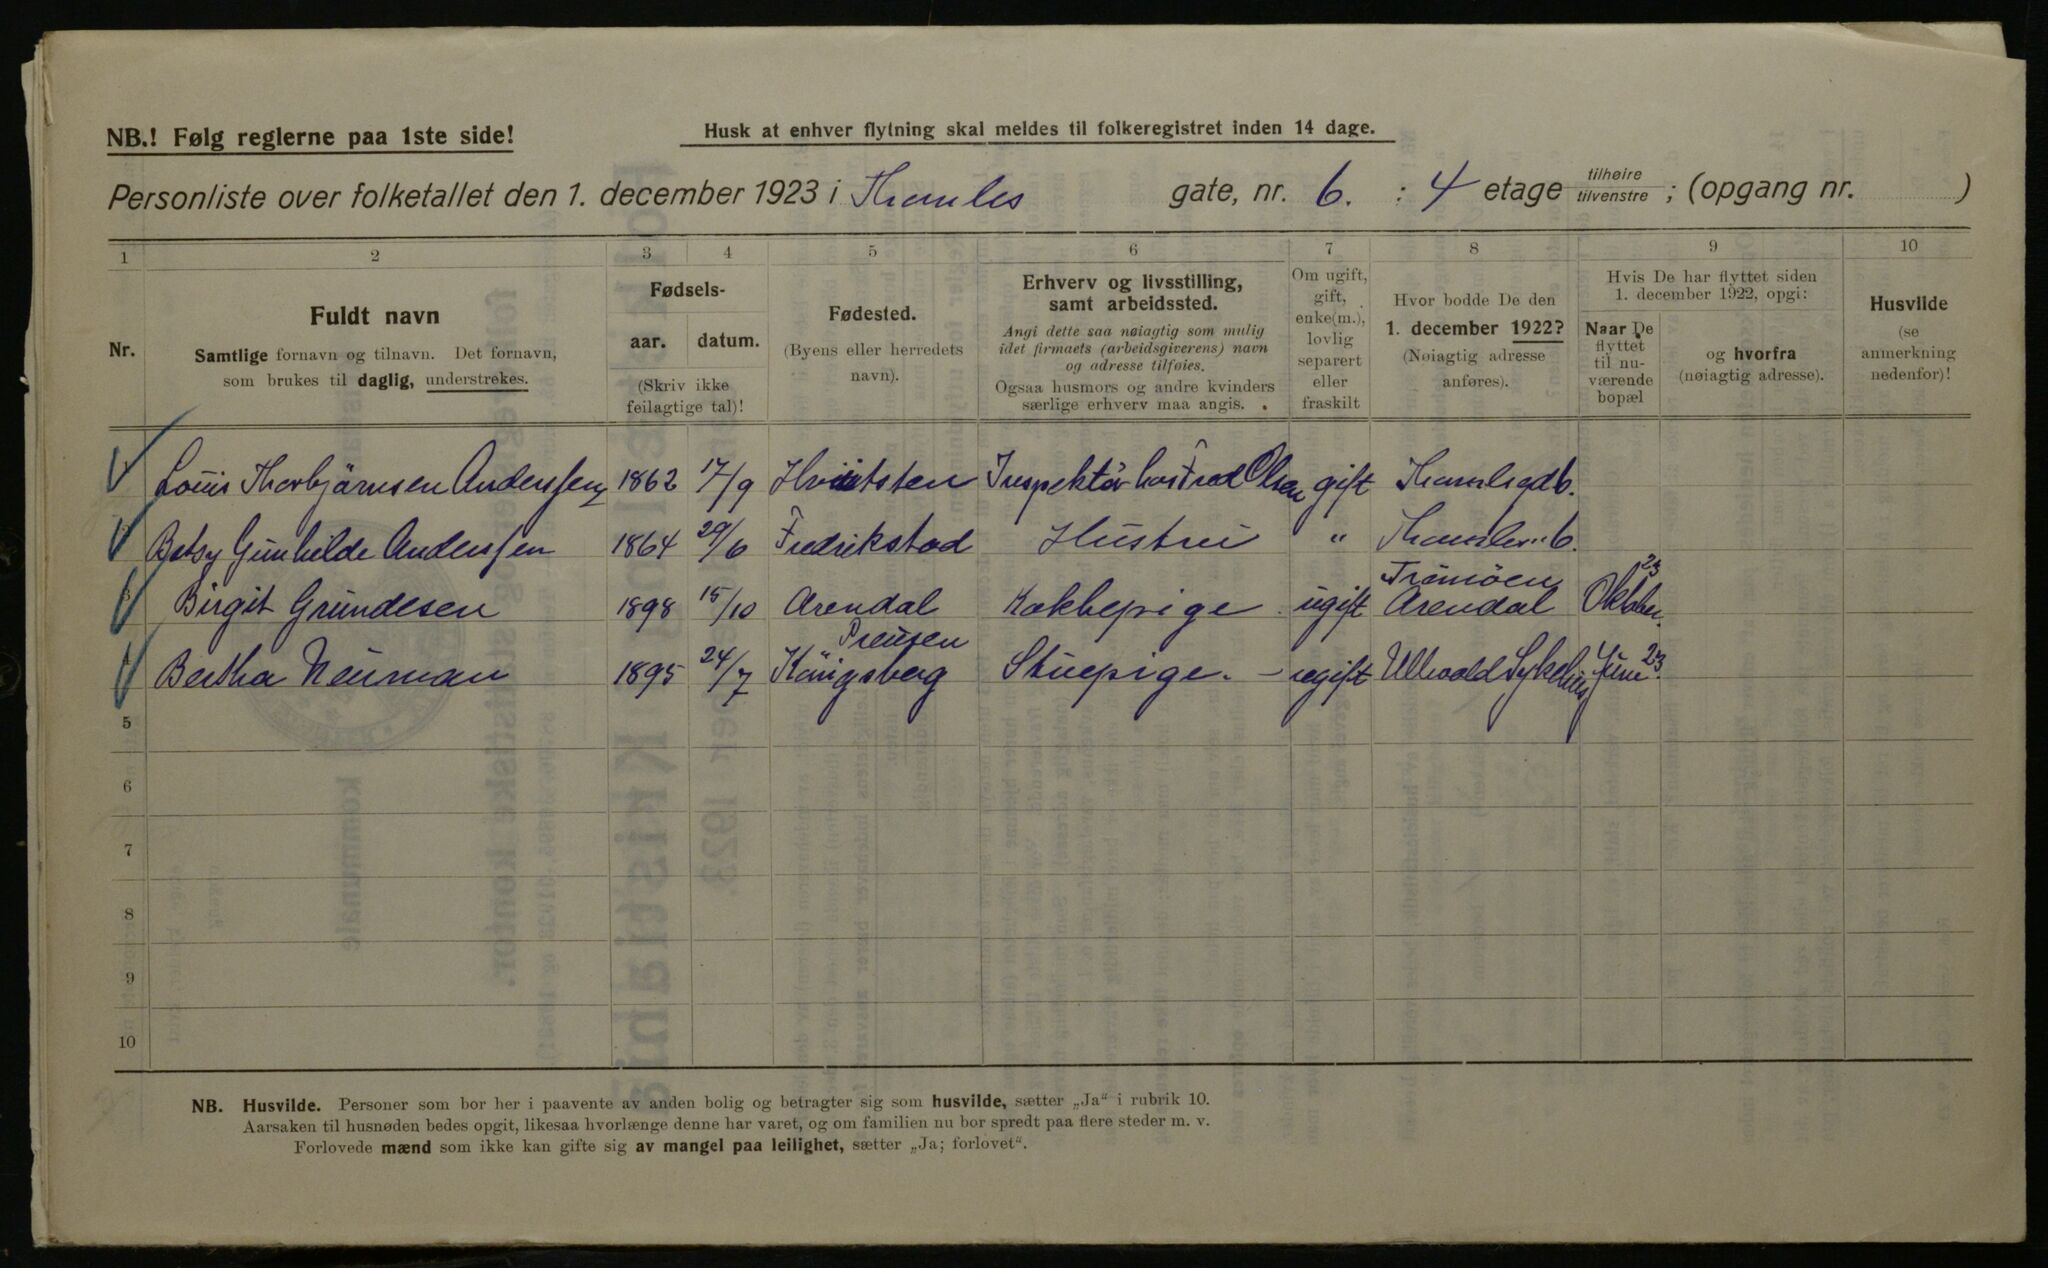 NB.! Følg reglerne paa 1ste side!
Husk at enhver flytning skal meldes til folkeregistret inden 14 dage.
Personliste over folketallet den 1. december 1923 i Thomles gate, nr. 6. : 4 etage tilhøire tilvenstre ; (opgang nr. )
1 2 3 4 5 6 7 8 9 10
Nr.
Fuldt navn
Samtlige fornavn og tilnavn. Det fornavn,
som brukes til daglig, understrekes.
Fødsels-
aar. datum.
(Skriv ikke
feilagtige tal)!
Fødested.
(Byens eller herredets
navn).
Erhverv og livsstilling,
samt arbeidssted.
Angi dette saa nøiagtig som mulig
idet firmaets (arbeidsgiverens) navn
og adresse tilføies.
Ogsaa husmors og andre kvinders
særlige erhverv maa angis.
Om ugift,
gift,
enke(m.),
lovlig
separert
eller
fraskilt
Hvor bodde De den
1. december 1922?
(Nøiagtig adresse
anføres).
Hvis De har flyttet siden
1. december 1922, opgi:
Naar De
flyttet
til nu-
værende
bopæl
og hvorfra
(nøiagtig adresse).
Husvilde
(se
anmerkning
nedenfor)!
Louis Thorbjørnsen Anderssen 1862 17/9 Hvitsten Inspektör hos Fred Olsen gift
Betsy Gunhilde Anderssen 1864 29/6 Fredrikstad Hustru "
Birgit Grundesen 1898 15/10 Arendal Kokkepige ugift Tromöen Arendal Oktober 23
Bertha Neuman 1895 24/7 Preusen Königsberg Stuepige. - ugift Ullevold Juni 23
5
6
7
8
9
10
NB. Husvilde. Personer som bor her i paavente av anden bolig og betragter sig som husvilde, sætter „Ja“ i rubrik 10.
Aarsaken til husnøden bedes opgit, likesaa hvorlænge denne har varet, og om familien nu bor spredt paa flere steder m. v.
Forlovede mænd som ikke kan gifte sig av mangel paa leilighet, sætter „Ja; forlovet“.